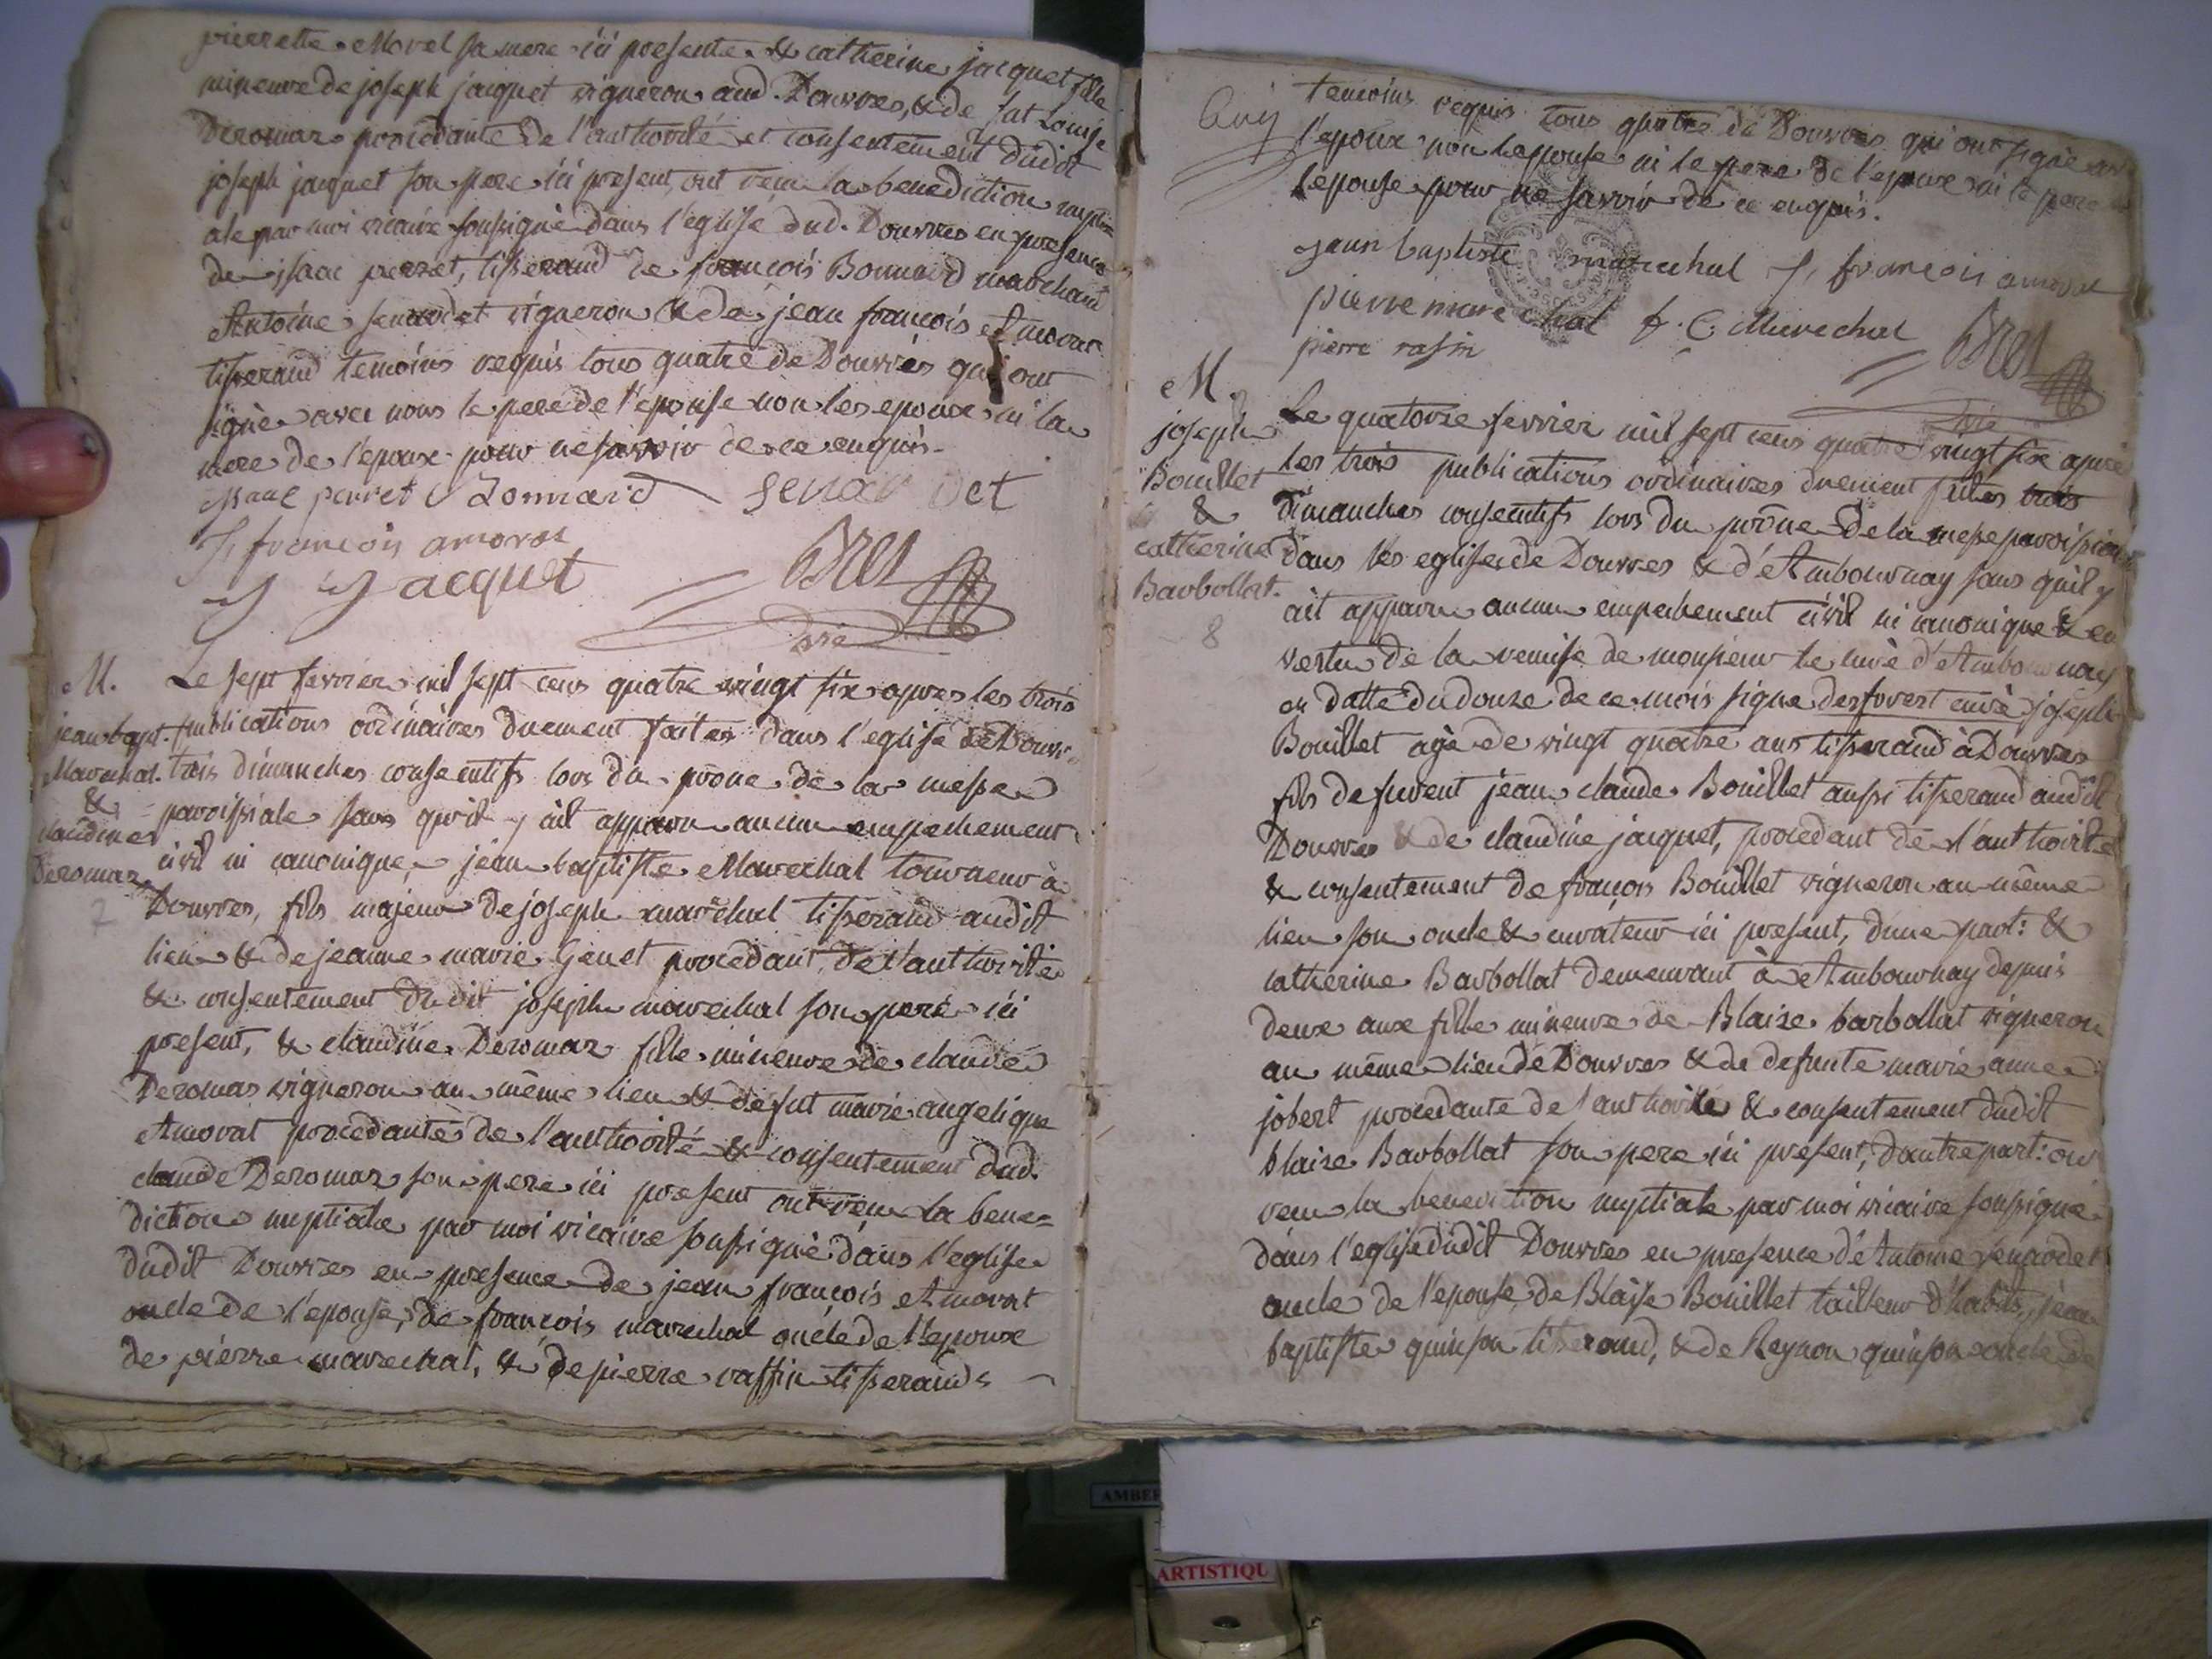 pierrette Morel sa mere ici presente & catherine jacquet fille
mineure de joseph jacquet vigneron aud. Douvres, & de fut Louise
Deromas procédante de l'authorité et consentement dudit
joseph jacquet son pere ici present, ont recu la benediction nupti
ale par moi vicaire soussigné dans l'eglise dud. Douvres en presence
de isaac perret, tisserand de francois Bonnard marchand
Antoine senardet vigneron & de jean francois Amorat
tisserand temoins requis tous quatre de Douvres qui ont
signé avec nous le pere de l'epouse non les epoux ni la
mere de l'epoux pour ne savoir de ce enquis.
isaac perret Bonnard senardet
J francois amorat
J Jacquet Bret
vic
M. Le sept fevrier mil sept cens quatre vingt six apres les trois
jean bapt. publications ordinaires duement faites dans l'eglise de Douvres
Marechal trois dimanches consecutifs lors du prone de la messe
& paroissiale sans qu'il y ait apparu aucun empechement
claudine civil ni canonique, jean baptiste Marechal tourneur à
Deromas Douvres, fils majeur de joseph marechal tisserand audit
7
lieu & de jeanne marie Genet procedant, de l'authorité
& consentement dudit joseph marechal son pere ici
present, & claudine Deromas fille mineure de claude
Deromas vigneron au même lieu & de fut marie angelique
Amorat procedante de l'authorité & consentement dud.
claude Deromas son pere ici present ont recu la bene=
diction nuptiale par moi vicaire soussigné dans l'eglise
dudit Douvres en presence de jean francois Amorat
oncle de l'epouse, de francois marechal oncle de l'epoux
de pierre marechal, & de pierre raffin tisserands
temoins requis tous quatre de Douvres qui ont signé avec
l'epoux non l'epouse ni le pere de l'epoux ni le pere de
l'epouse pour ne savoir de ce enquis.
jean baptiste marechal J. francois amorat
pierre marechal f. C. Marechal
pierre rafin Bret
vic
M. Le quatorze fevrier mil sept cens quatre vingt six apres
joseph les trois publications ordinaires duement faites trois
Bouillet dimanches consecutifs lors du prône de la messe paroissiale
& dans les eglises de Douvres & d'Ambournay sans qu'il y
catherine ait apparu aucun empechement civil ni canonique & en
Barbollat. vertu de la remise de monsieur le curé d'Ambournay
8
en datte du douze de ce mois signe desforest curé joseph
Bouillet agé de vingt quatre ans tisserand à Douvres
fils de furent jean claude Bouillet aussi tisserand audit
Douvres & de claudine jacquet, procedant de l'authorité
& consentement de françois Bouillet vigneron au même
lieu son oncle & curateur ici present, d'une part: &
catherine Barbollat demeurant à Ambournay depuis
deux ans fille mineure de Blaise barbollat vigneron
au même lieu de Douvres & de defunte marie anne
jobert procedante de l'authorité & consentement dudit
blaise Barbollat son pere ici present, d'autre part: ont
recu la benediction nuptiale par moi vicaire soussigné
dans l'eglise dudit Douvres en presence d'Antoine senardet
oncle de l'epouse, de Blaise Bouillet tailleur d'habits, jean
baptiste quinson tisserand, & de Reynon quinson oncle de
AMBER
ARTISTIQU